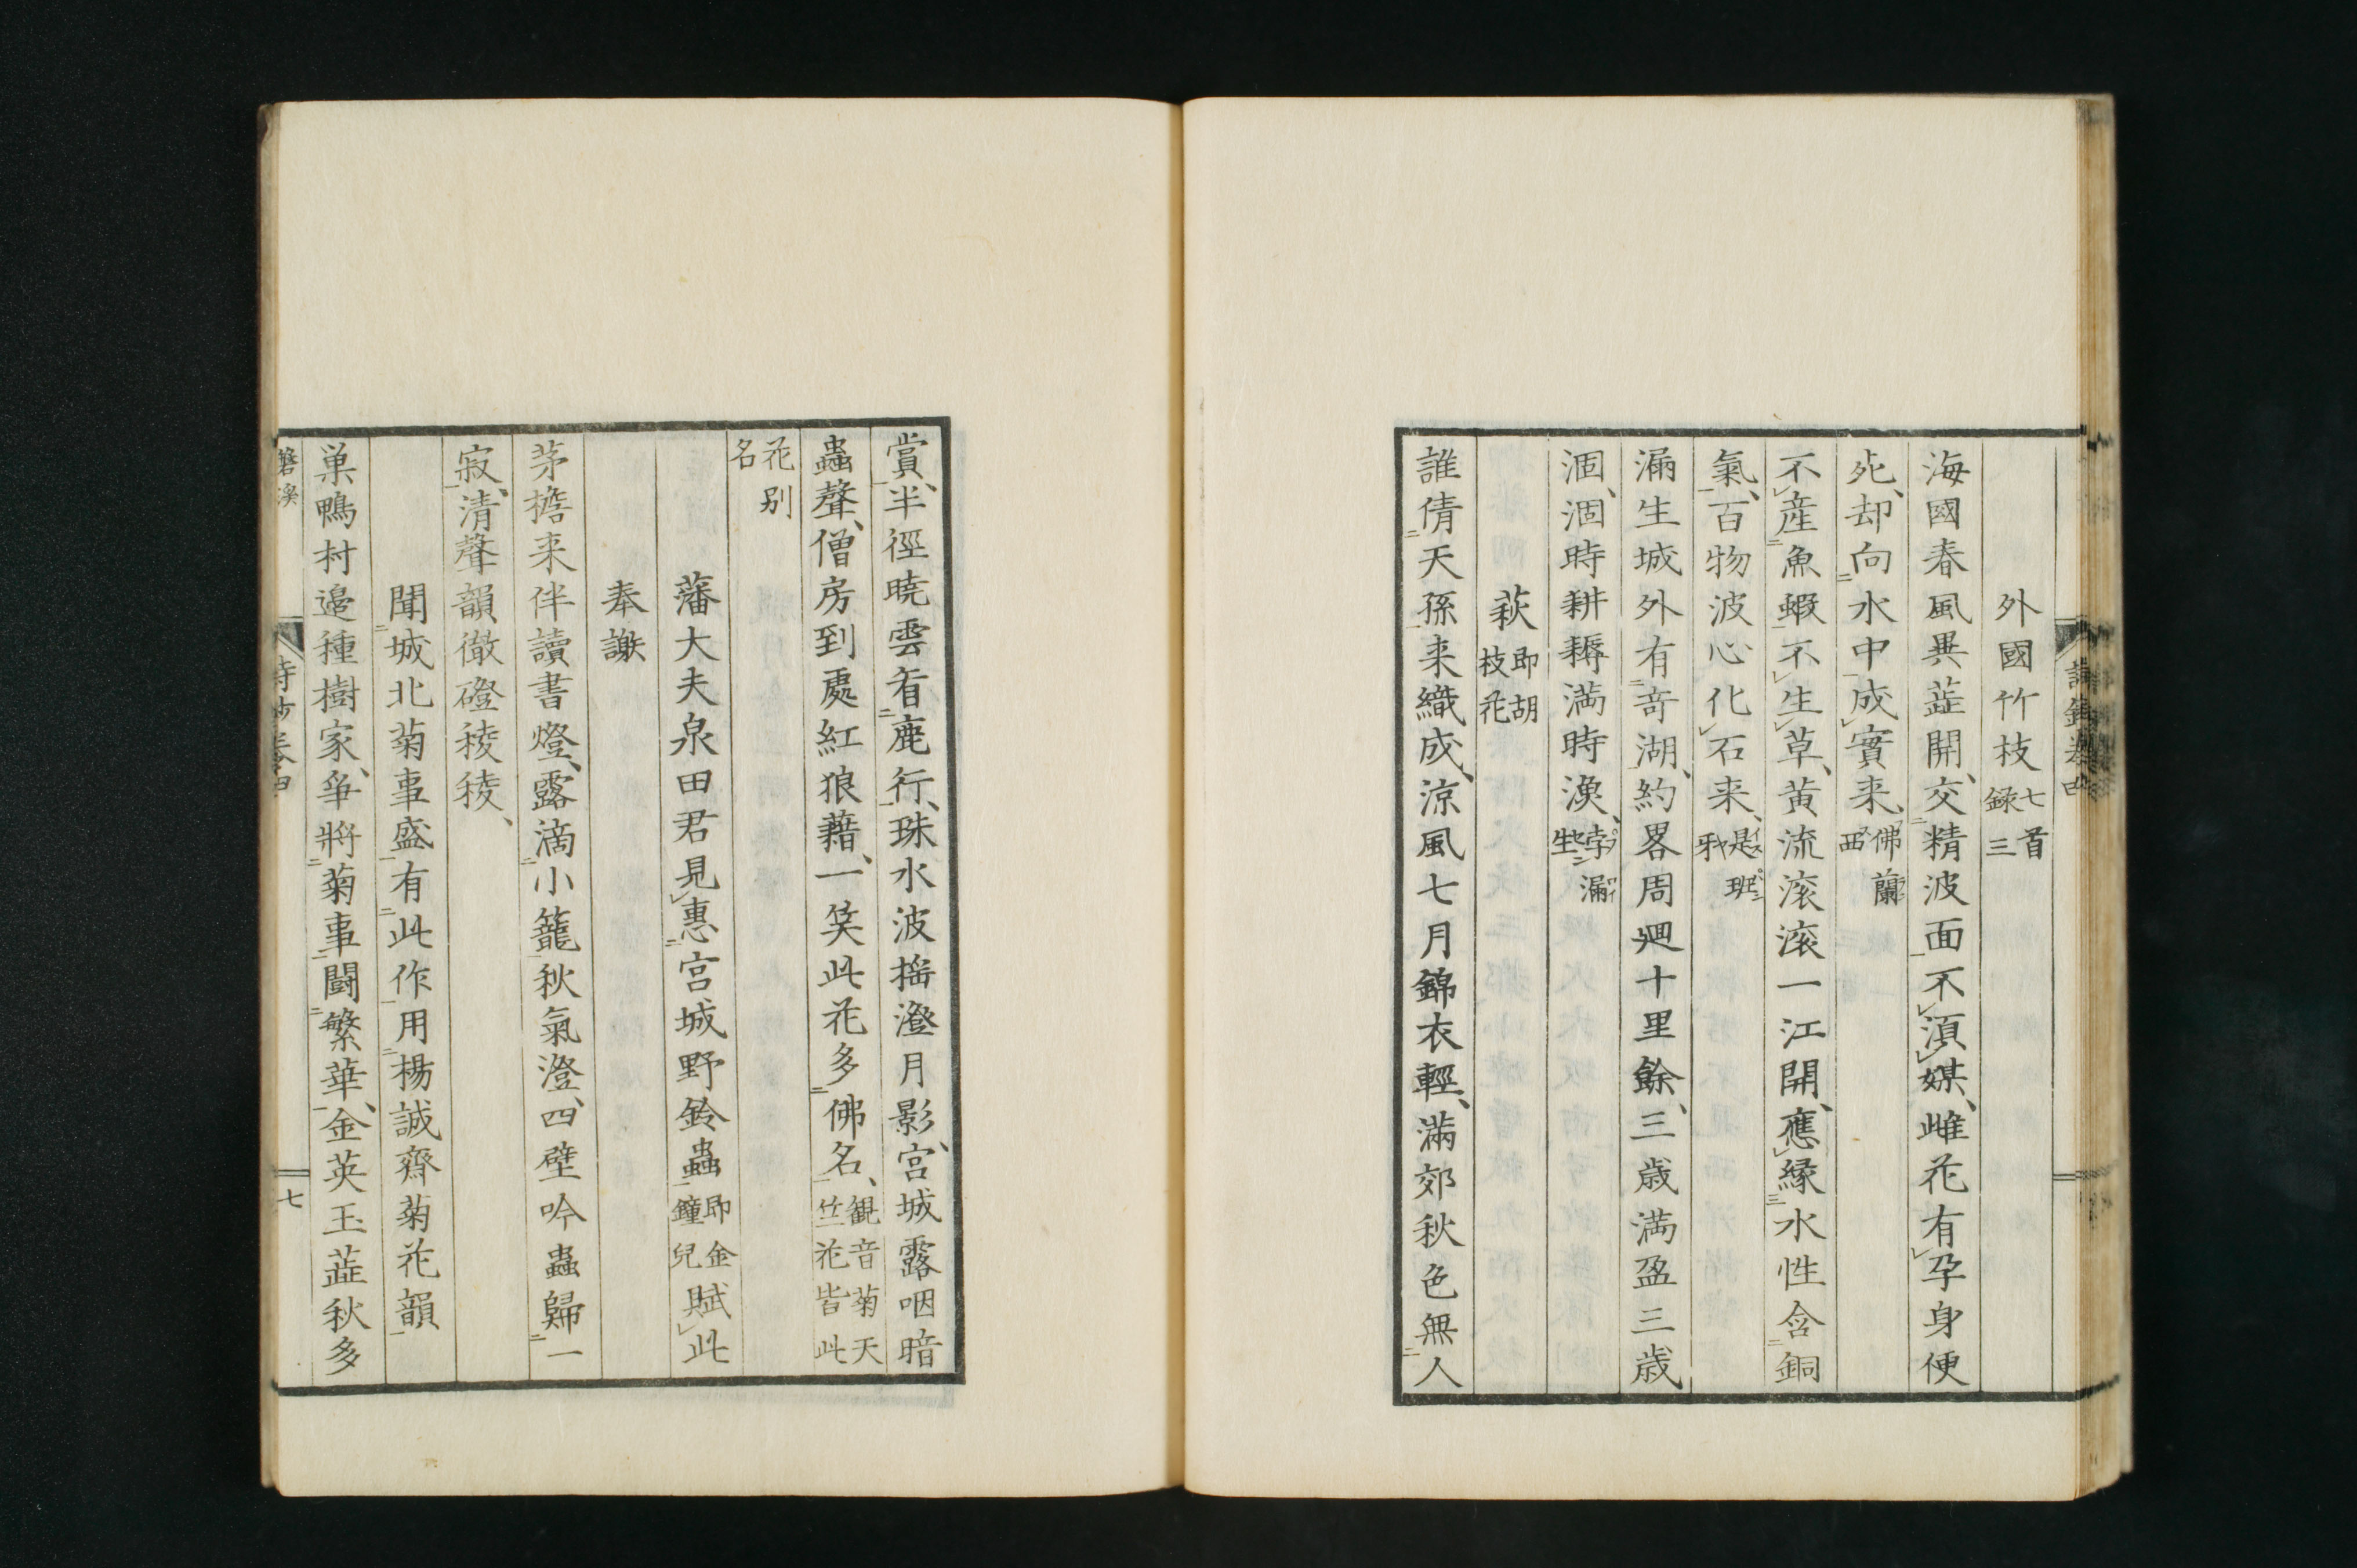 外國竹枝七首録三
海國春風異蕋開、交精波面不湏媒、雌花有孕身便
死、却向水中成實来、佛蘭西
不産魚蝦不生草、黄流滚滚一江開、應縁水性含銅
氣、百物波心化石来、是班牙
漏生城外有竒湖、約畧周廻十里餘、三歳満盈三歳
涸、涸時耕耨満時漁、孛漏生
萩即胡枝花
誰倩天孫来織成、涼風七月錦衣輕、滿郊秋色無人
賞、半徑暁雲看鹿行、珠水波揺澄月影、宮城露咽暗
蟲聲、僧房到處紅狼藉、一笑此花多佛名、観音菊天竺花皆此
花别名
藩大夫泉田君見惠宮城野鈴蟲即金鐘兒賦此
奉謝
茅擔来伴讀書燈、露滴小籠秋氣澄、四壁吟蟲歸一
寂、清聲韻徹磴稜稜、
聞城北菊事盛有此作用楊誠齋菊花韻
巣鴨村邉種樹家、争將菊事闘繁華、金英玉蕋秋多
磐溪 詩鈔卷四 七